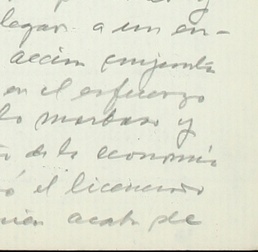 y
llegar a un en-
accion conjunta
en el esfuerzo
lo y
de la economía
ó el licenciado
acaba de